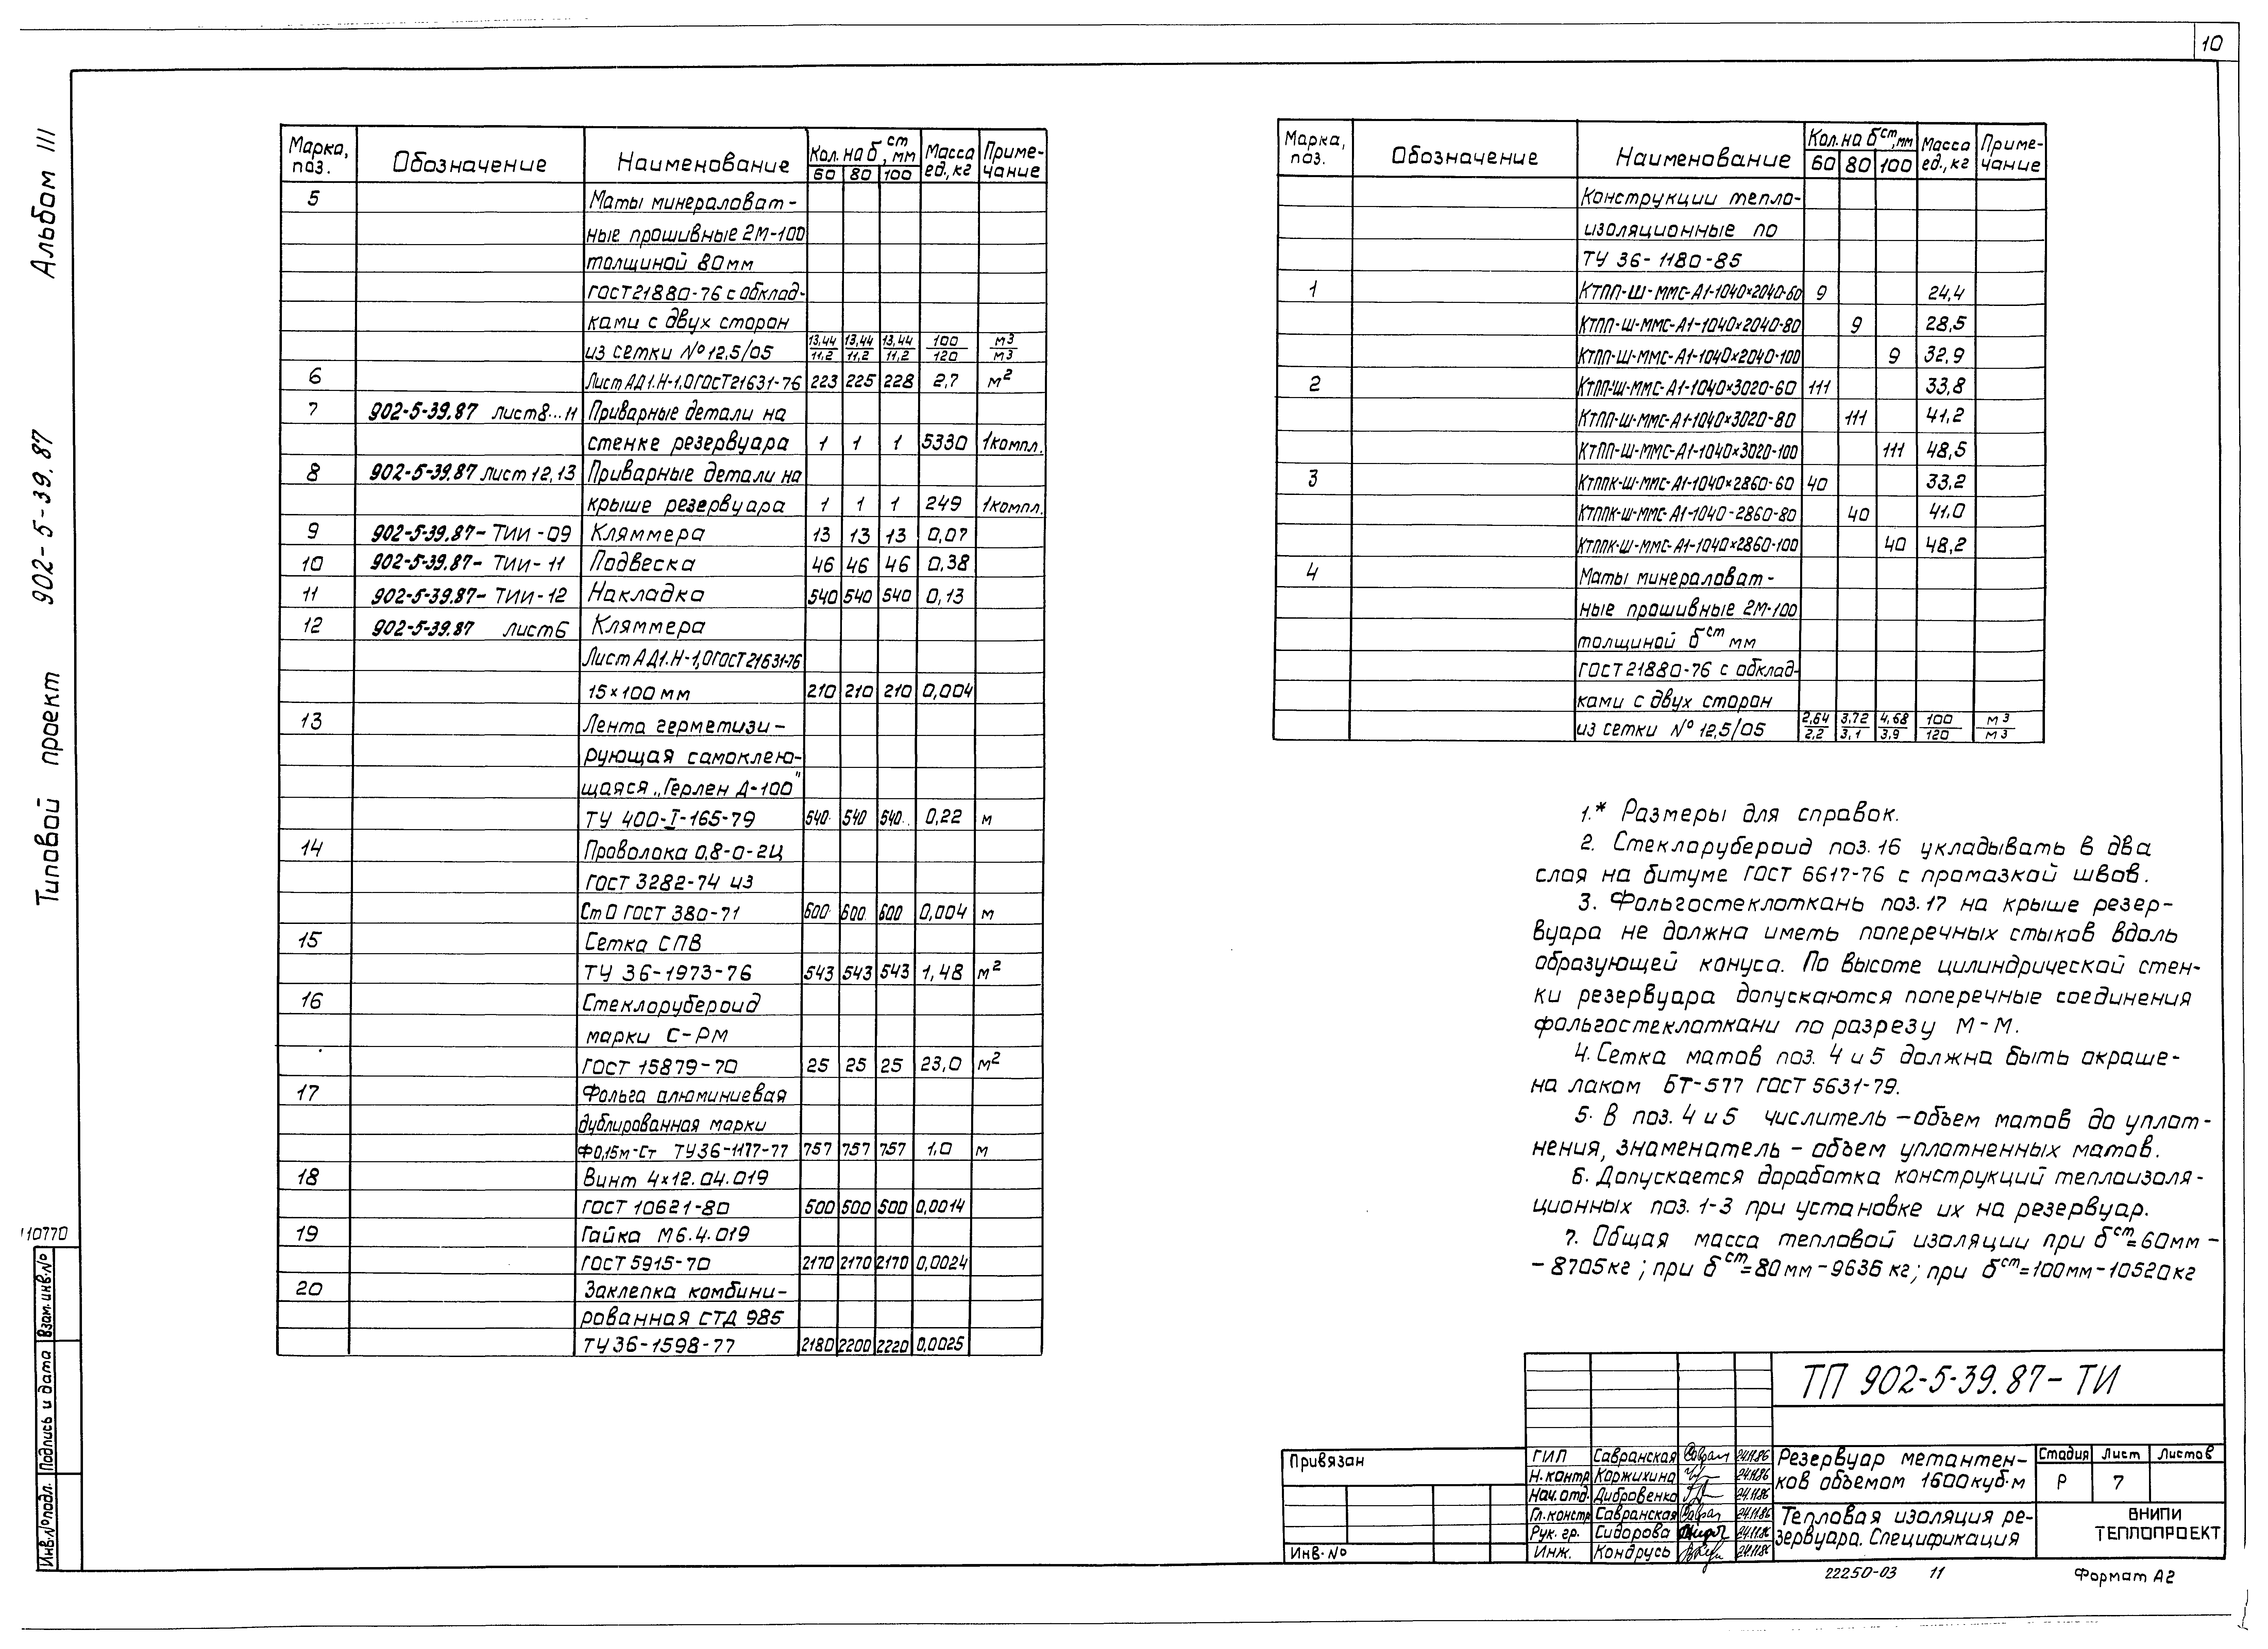 10
Альбом III
902-5-39.87
Типовой проект
Марка, поз. Обозначение Наименование Кол. на б ст, мм Масса ед., кг Приме-чание
60 80 100
5 Маты минераловат-
ные прошивные 2М-100
толщиной 80мм
ГОСТ21880-76 с обклад-
ками с двух сторон
из сетки №12,5/05 13,44/11,2 13,44/11,2 13,44/11,2 100/120 м3/м3
6 Лист АД1.Н-1,0ГОСТ21631-76 223 225 228 2,7 м2
7 902-5-39.87 лист8...11 Приварные детали на
стенке резервуара 1 1 1 5330 1компл.
8 902-5-39.87 лист 12,13 Приварные детали на
крыше резервуара 1 1 1 249 1компл.
9 902-5-39.87- ТИИ-09 Кляммера 13 13 13 0,07
10 902-5-39.87- ТИИ-11 Подвеска 46 46 46 0,38
11 902-5-39.87- ТИИ-12 Накладка 540 540 540 0,13
12 902-5-39.87 лист6 Кляммера
Лист АД1.Н-1,0ГОСТ21631-76
15×100 мм 210 210 210 0,004
13 Лента герметизи-
рующая самоклею-
щаяся „Герлен Д-100"
ТУ 400-I-165-79 540 540 540 0,22 м
14 Проволока 0,8-0-2Ц
ГОСТ 3282-74 из
Ст0 ГОСТ 380-71 600 600 600 0,004 м
15 Сетка СПВ
ТУ 36-1973-76 543 543 543 1,48 м2
16 Стеклорубероид
марки С-РМ
ГОСТ 15879-70 25 25 25 23,0 м2
17 Фольга алюминиевая
дублированная марки
Ф0,15м-Ст ТУ36-1177-77 757 757 757 1,0 м
18 Винт 4×12.04.019
ГОСТ 10621-80 500 500 500 0,0014
19 Гайка М6.4.019
ГОСТ 5915-70 2170 2170 2170 0,0024
20 Заклепка комбини-
рованная СТД 985
ТУ36-1598-77 2180 2200 2220 0,0025
Марка, поз. Обозначение Наименование Кол. на б ст, мм Масса ед., кг Приме-чание
60 80 100
Конструкции тепло-
изоляционные по
ТУ 36-1180-85
1 КТПП-Ш-ММС-А1-1040×2040-60 9 24,4
КТПП-Ш-ММС-А1-1040×2040-80 9 28,5
КТПП-Ш-ММС-А1-1040×2040-100 9 32,9
2 КТПП-Ш-ММС-А1-1040×3020-60 111 33,8
КТПП-Ш-ММС-А1-1040×3020-80 111 41,2
КТПП-Ш-ММС-А1-1040×3020-100 111 48,5
3 КТППК-Ш-ММС-А1-1040×2860-60 40 33,2
КТППК-Ш-ММС-А1-1040-2860-80 40 41,0
КТППК-Ш-ММС-А1-1040×2860-100 40 48,2
4 Маты минераловат-
ные прошивные 2М-100
толщиной б ст мм
ГОСТ21880-76 с обклад-
ками с двух сторон
из сетки №12,5/05 2,64/2,2 3,72/3,1 4,68/3,9 100/120 м3/м3
1.* Размеры для справок.
2. Стеклорубероид поз.16 укладывать в два
слоя на битуме ГОСТ 6617-76 с промазкой швов.
3. Фольгостеклоткань поз.17 на крыше резер-
вуара не должна иметь поперечных стыков вдоль
образующей конуса. По высоте цилиндрической стен-
ки резервуара допускаются поперечные соединения
фольгостеклоткани по разрезу М-М.
4. Сетка матов поз. 4 и 5 должна быть окраше-
на лаком БТ-577 ГОСТ 5631-79.
5. В поз. 4 и 5 числитель – объем матов до уплот-
нения, знаменатель – объем уплотненных матов.
6. Допускается доработка конструкций теплоизоля-
ционных поз. 1-3 при установке их на резервуар.
7. Общая масса тепловой изоляции при б ст=60мм -
- 8705кг; при б ст=80мм-9636 кг; при б ст=100мм-10520кг
110770
Взам. инв.№
Подпись и дата
Инв.№подл.
Привязан
Инв.№
ТП 902-5-39.87-ТИ
ГИП Савранская 24.11.86
Н.контр Коржихина 24.11.86
Нач.отд. Дибровенко 24.11.86
Гл.констр Савранская 24.11.86
Рук. гр. Сидорова 24.11.86
Инж. Кондрусь 24.11.86
Резервуар метантен-
ков объемом 1600куб.м
Стадия Лист Листов
Р 7
Тепловая изоляция ре-
зервуара. Спецификация
ВНИПИ
ТЕПЛОПРОЕКТ
22250-03 11
Формат А2